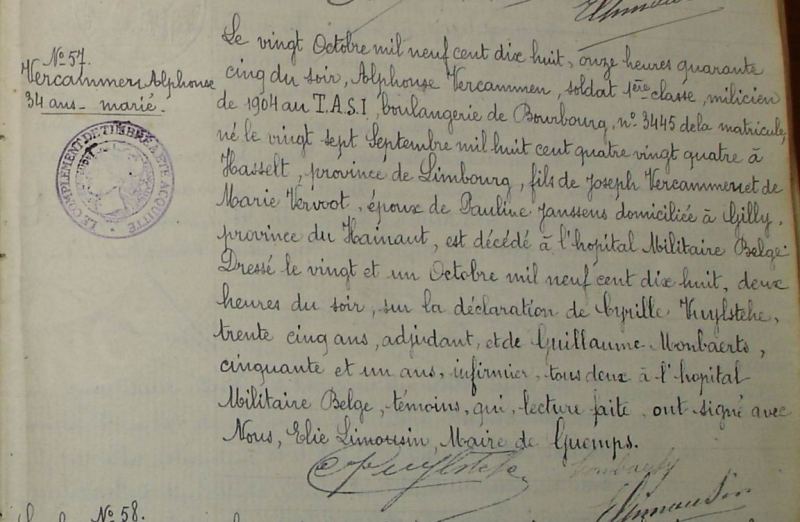 N° 57.
Vercammen Alphonse
34 ans - marié.
LE COMPLEMENT DE TIMBRE A ETE ACQUITTE
Le vingt Octobre mil neuf cent dix huit, onze heures quarante
cinq du soir, Alphonse Vercammen, soldat 1ère classe, milicien
de 1904 au T.A.S.I, boulangerie de Bourbourg, n° 3445 de la matricule,
né le vingt sept Septembre mil huit cent quatre vingt quatre à
Hasselt, province de Limbourg, fils de Joseph Vercammen et de
Marie Vervoot, époux de Pauline Janssens domiciliée à Gilly,
province du Hainaut, est décédé à l'hopital Militaire Belge.
Dressé le vingt et un Octobre mil neuf cent dix huit, deux
heures du soir, sur la déclaration de Cyrille Kuylstehe,
trente cinq ans, adjudant, et de Guillaume Monbaerts,
cinquante et un ans, infirmier, tous deux à l'hopital
Militaire Belge, témoins, qui, lecture faite, ont signé avec
Nous, Elie Limousin, Maire de Guemps.
N° 58.